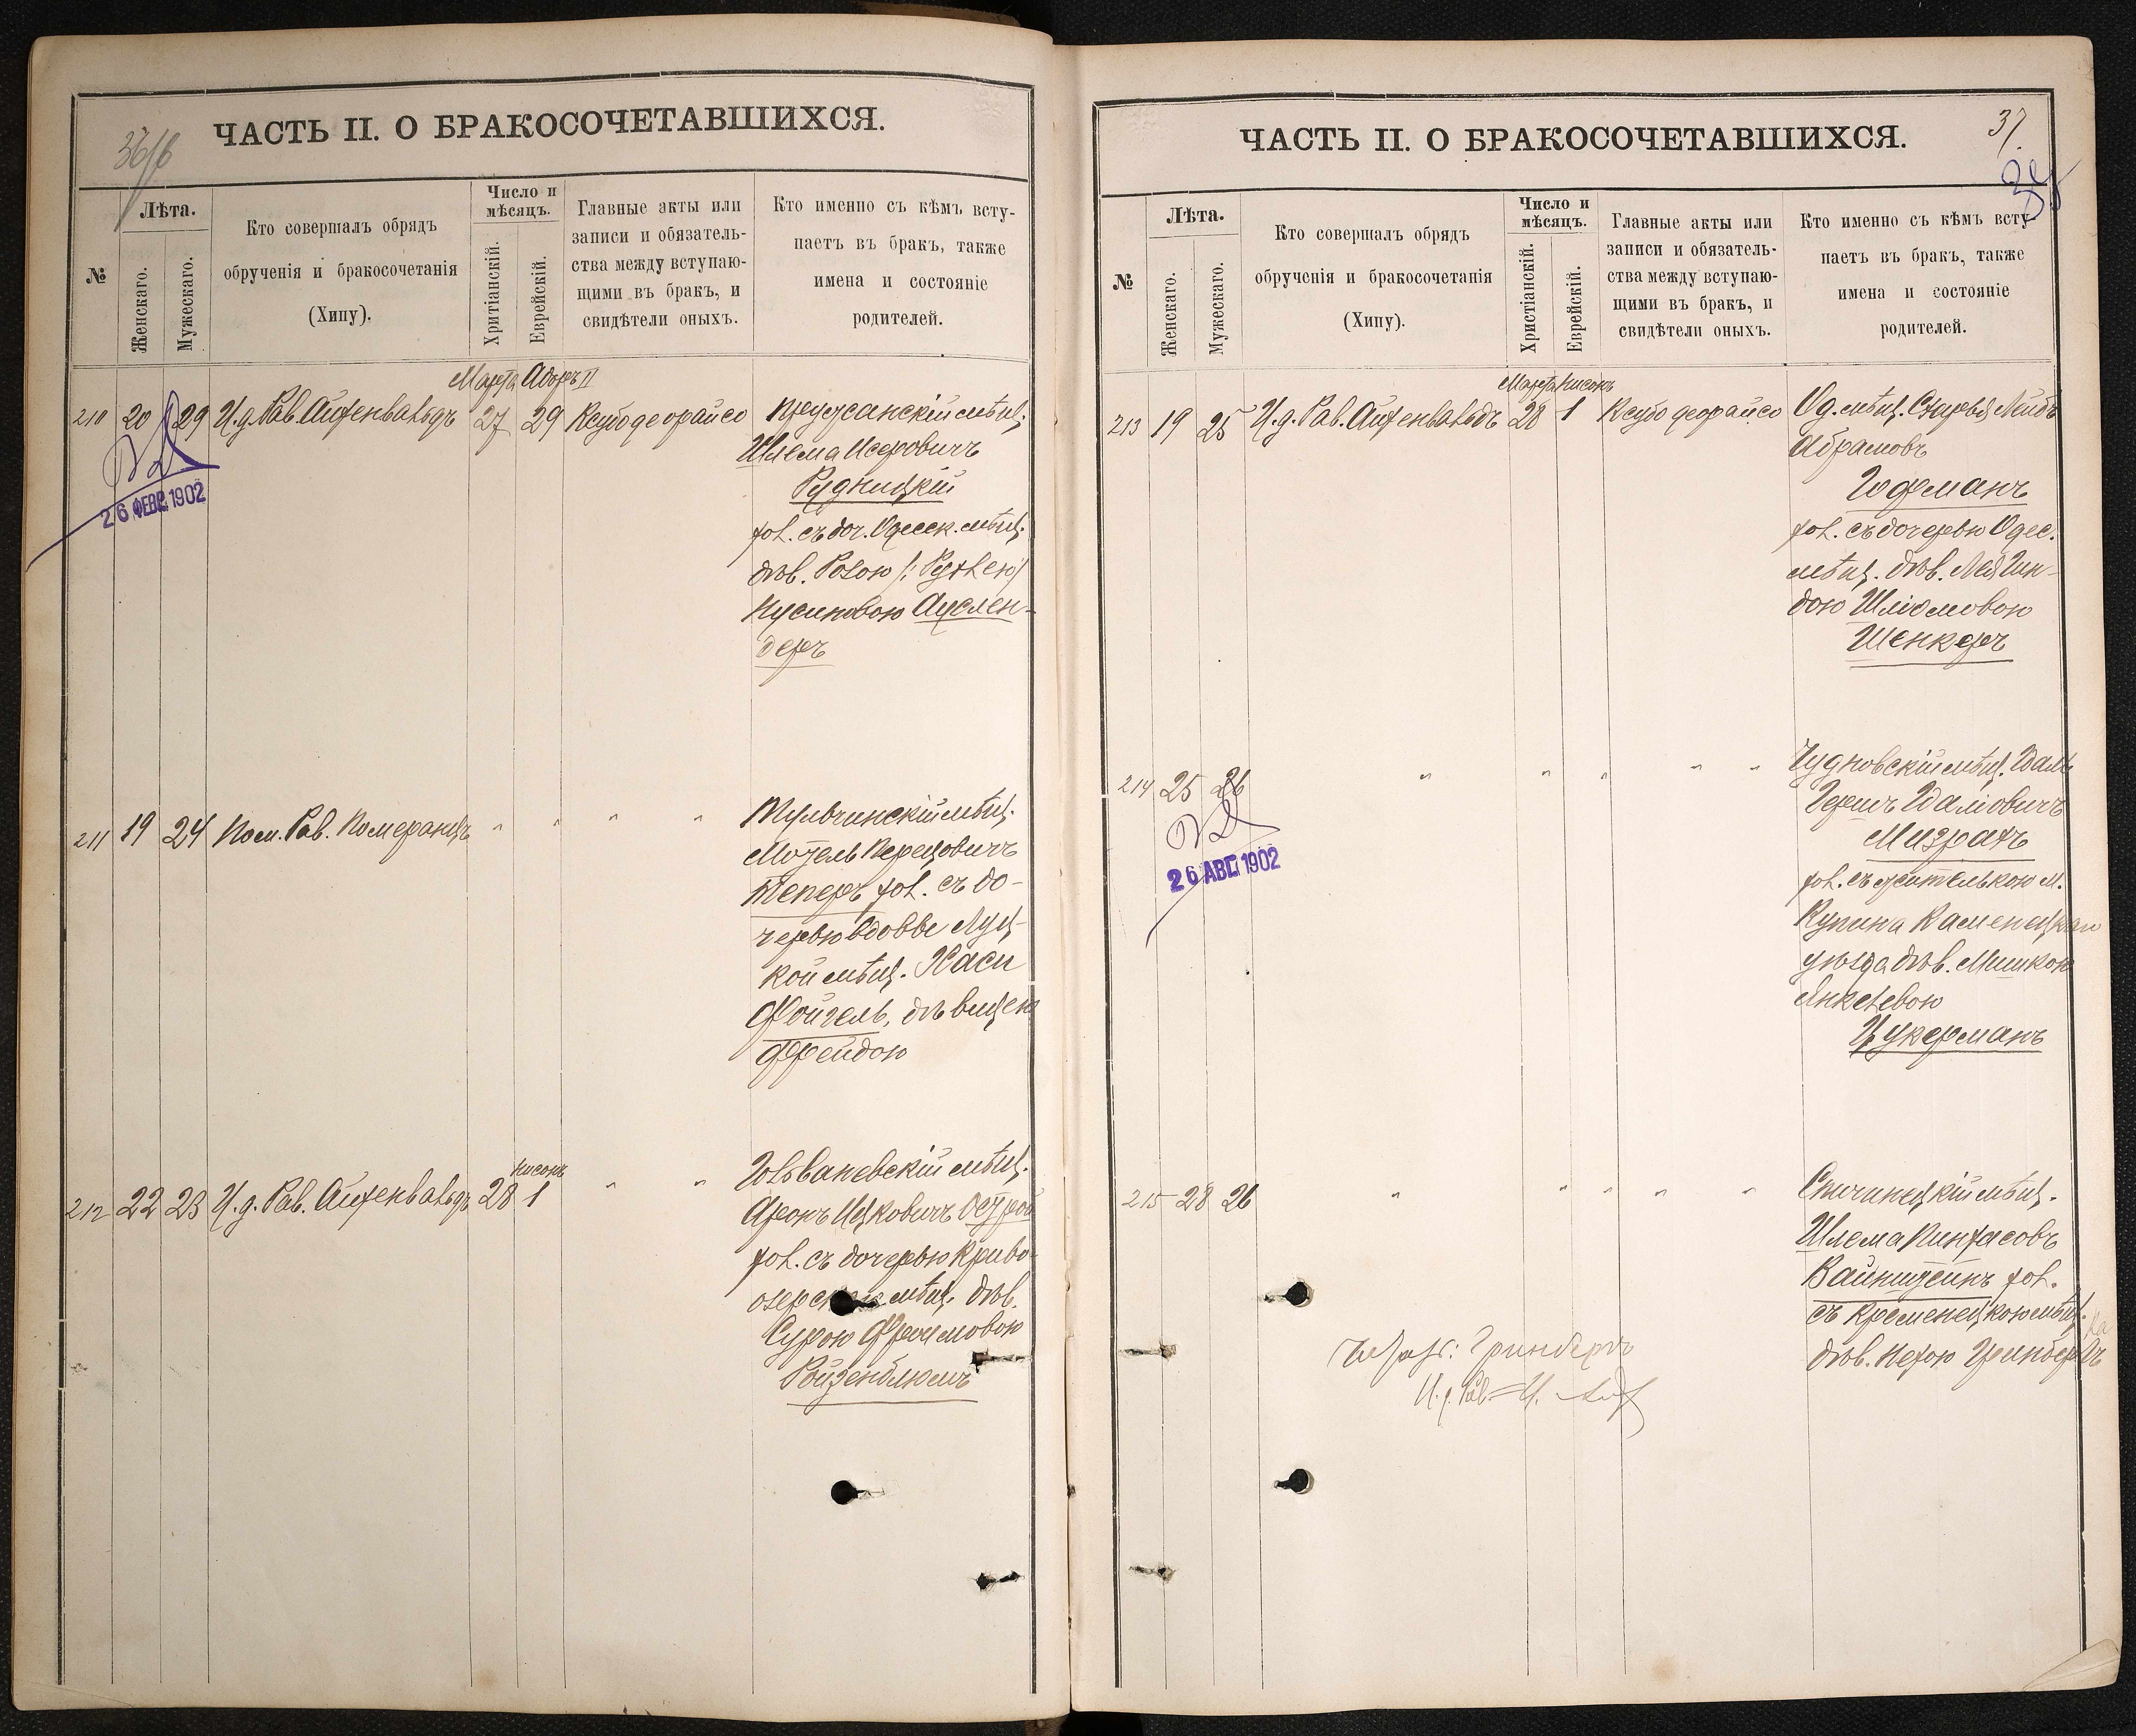 36/б
ЧАСТЬ II. О БРАКОСОЧЕТАВШИХСЯ.
№
Лѣта.
Женскаго.
Мужескаго.
Кто совершалъ обрядъ
обрученія и бракосочетанія
(Хипу).
Число и
мѣсяцъ.
Хритіанскій.
Еврейскій.
Главные акты или
записи и обязатель-
ства между вступаю-
щими въ бракъ, и
свидѣтели оныхъ.
Кто именно съ кѣмъ всту-
паетъ въ бракъ, также
имена и состояніе
родителей.
Марта Адоръ II
210 20 29 И.д. Рав. Айхенвальдъ 27 29 Ксубо деорайсо
Пружанскій мѣщ.
Шлема Исеровичъ
Рудницкій
хол. съ доч. Одесск. мѣщ.
дѣв. Розою /: Рухлею/
Нусиновою Ауслен-
деръ
26 ФЕВР. 1902
211 19 24 Пом. Рав. Померанцъ " " " "
Тульчинскій мѣщ.
Мотель Перецовичъ
Теперъ хол. съ до-
черью вдовы Луц-
кой мѣщ. Хаси
Фойгель, дѣвицею
Фрейдою
Нисонъ
212 22 23 И.д. Рав. Айхенвальдъ 28 1 " "
Голованевскій мѣщ.
Аронъ Ицковичъ Остров
хол. съ дочерью Криво-
озерск мѣщ. дѣв.
Сурою Фроимовою
Ройзенблюмъ
37.
ЧАСТЬ II. О БРАКОСОЧЕТАВШИХСЯ.
№
Лѣта.
Женскаго.
Мужескаго.
Кто совершалъ обрядъ
обрученія и бракосочетанія
(Хипу).
Число и
мѣсяцъ.
Христіанскій.
Еврейскій.
Главные акты или
записи и обязатель-
ства между вступаю-
щими въ бракъ, и
свидѣтели оныхъ.
Кто именно съ кѣмъ всту-
паетъ въ бракъ, также
имена и состояніе
родителей.
Марта Нисонъ
213 19 25 И.д. Рав. Айхенвальдъ 28 1 Ксубо деорайсо
Од. мѣщ. Лейбъ
Абрамовъ
Гофманъ
хол. съ дочерью Одес.
мѣщ. дѣв. Лея Гин-
дою Шліомовою
Шенкеръ
214 25 26 " " " " "
Чудновскій мѣщ. Идаль
Гершъ Идаліовичъ
Мизрахъ
хол. съ жителькою м.
Купина Каменецкаго
уѣзда дѣв. Мишкою
Янкелевою
Цукерманъ
26 АВГ. 1902
215 28 26 " " " " "
Спичинецкій мѣщ.
Шлема Пинхасовъ
Вайнштейнъ хол.
съ Кременецкою мѣщ.
дѣв. Нехою Гринбергъ
Гринбергъ
И.д. Рав.